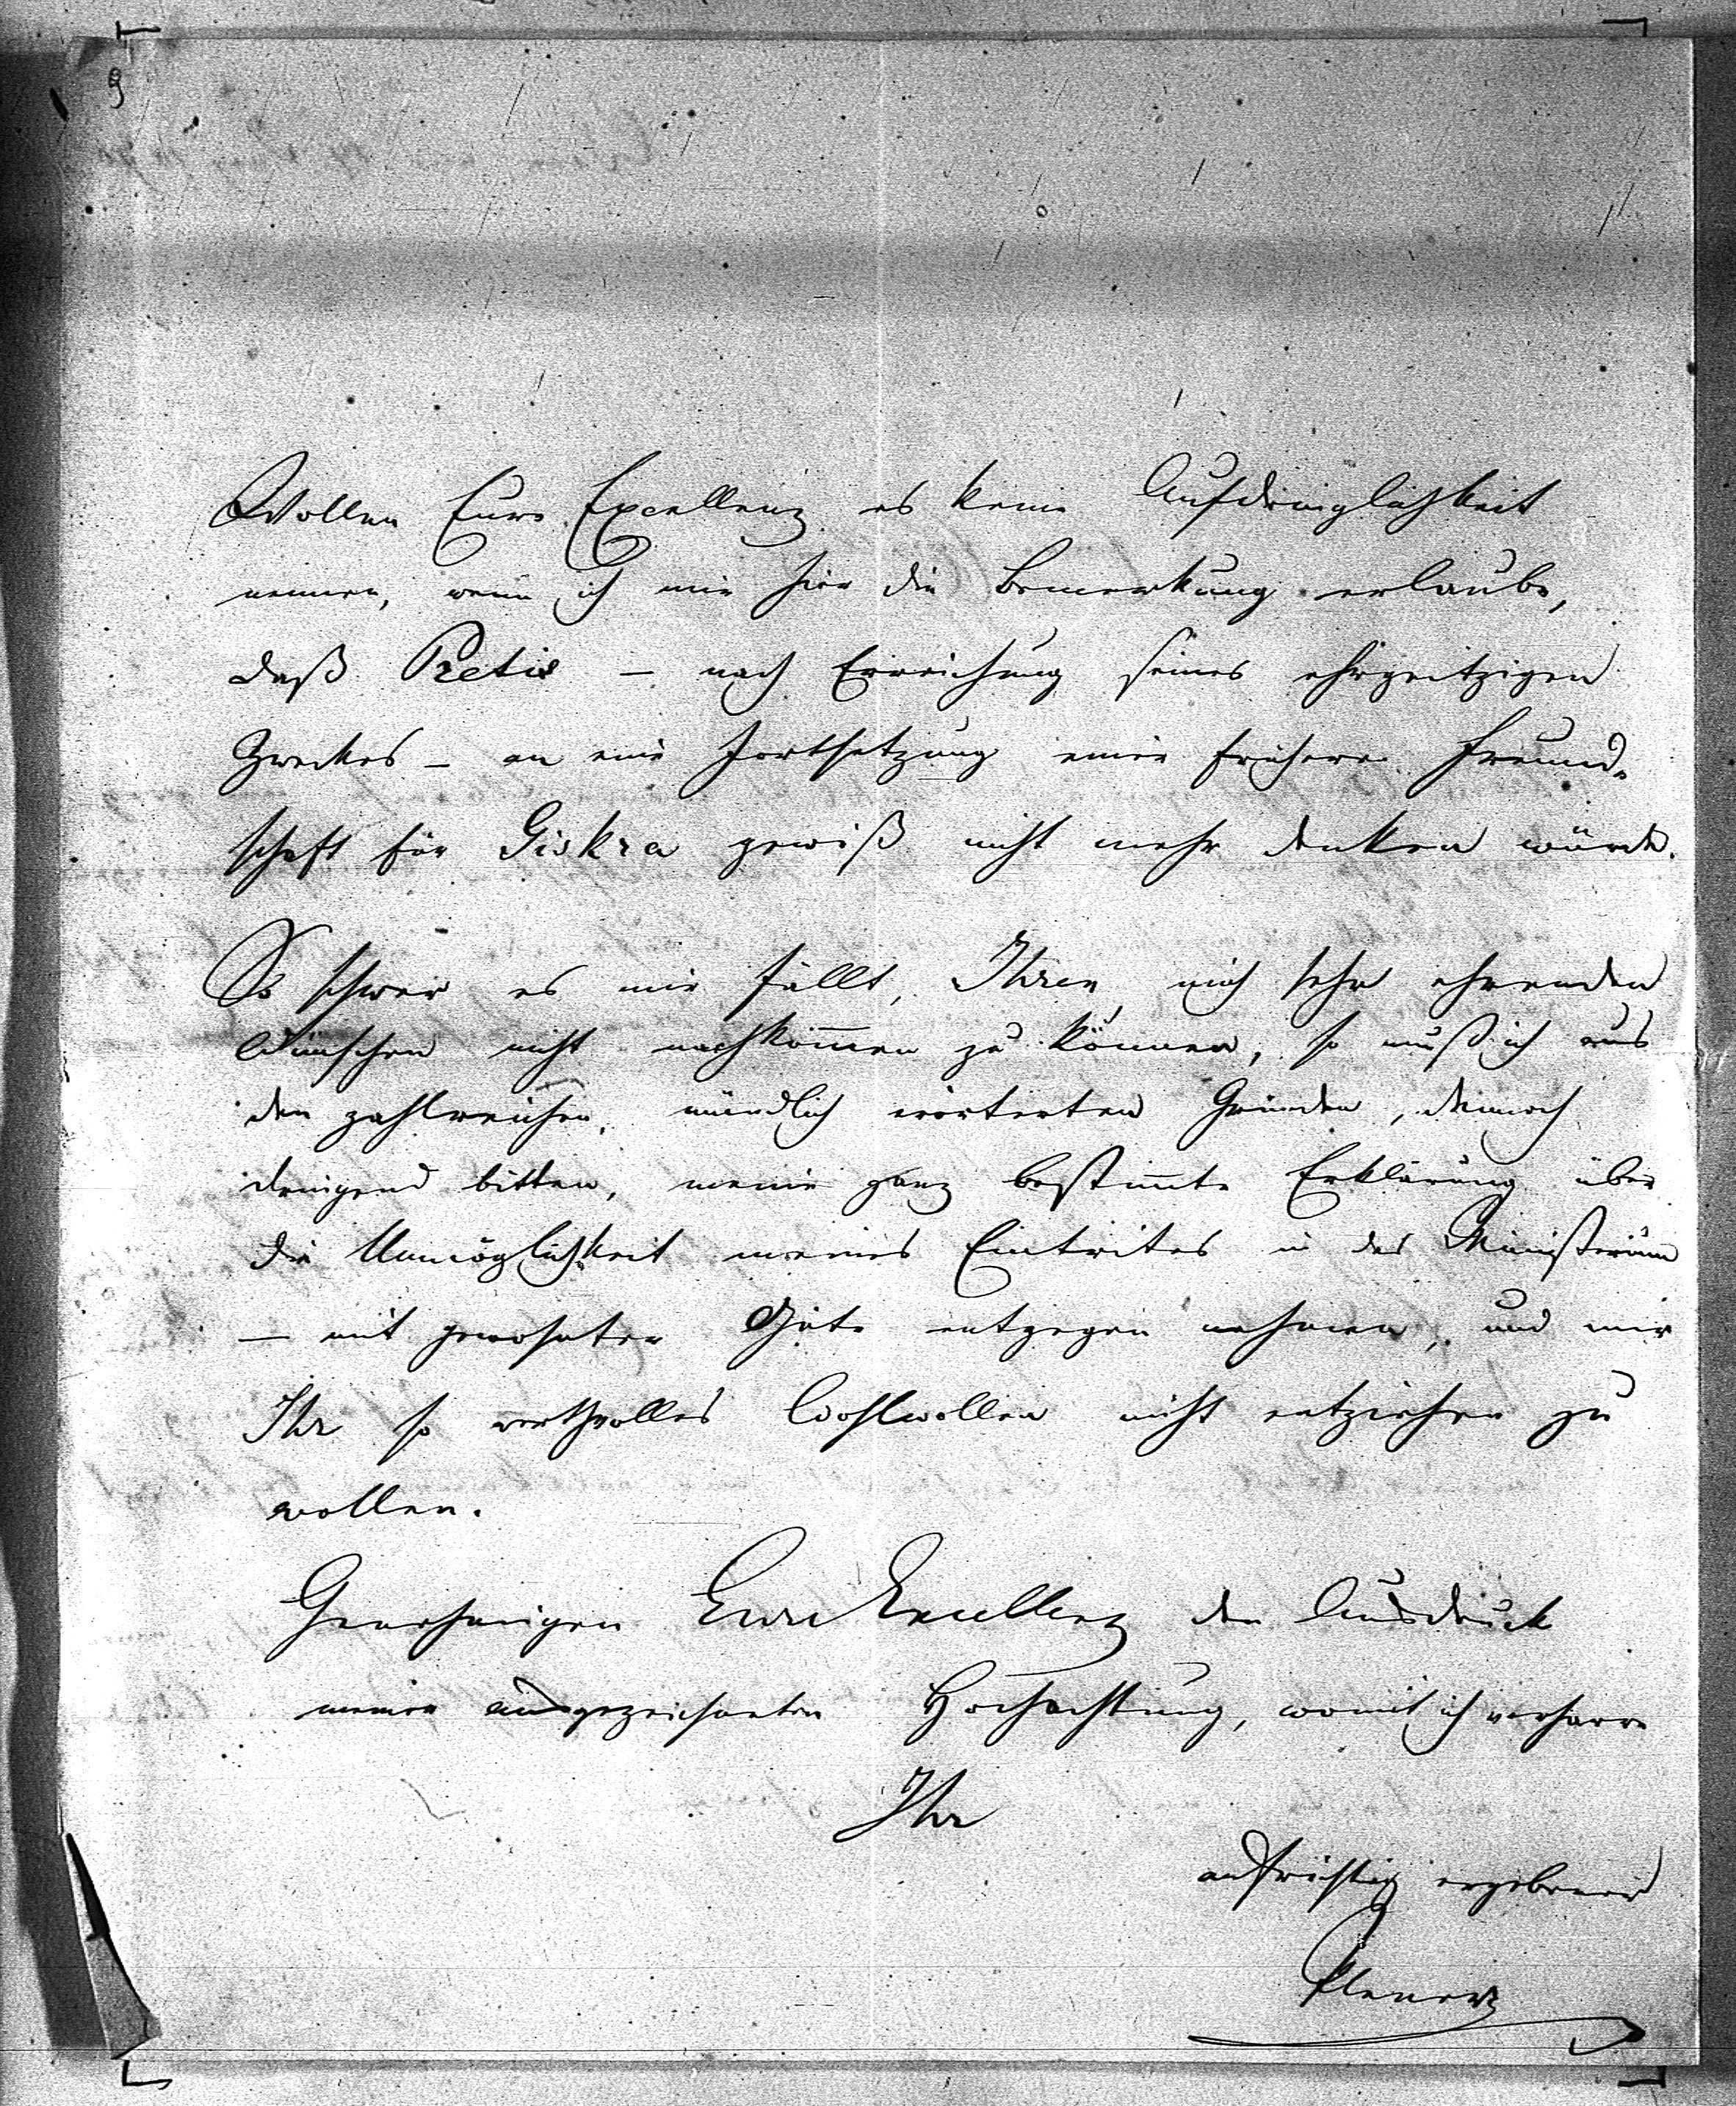 9
Wollen Eure Excellenz es keine Aufdringlichkeit
nennen, wenn ich mir hier die Bemerkung erlaube,
daß Pretis – nach Erreichung seines ehrgeitzigen
Zweckes – an eine Fortsetzung einer früheren Freund-
schaft für Giskra gewiß nicht mehr denken würde.
So schwer es mir fällt, Ihren, mich sehr ehrenden
Wünschen nicht nachkom̄en zu können, so muß ich aus
den zahlreichen, mündlich erörterten Gründen, dennoch
dringend bitten, meine ganz bestim̄te Erklärung über
die Unmöglichkeit meines Eintrittes in das Ministerium
– mit gewohnter Güte entgegen nehmen, und mir
Ihr so werthvolles Wohlwollen nicht entziehen zu
wollen.
Genehmigen Eure Excellenz den Ausdruck
meiner ausgezeichneten Hochachtung, womit ich verharre
Ihr
aufrichtig ergebener
Plener